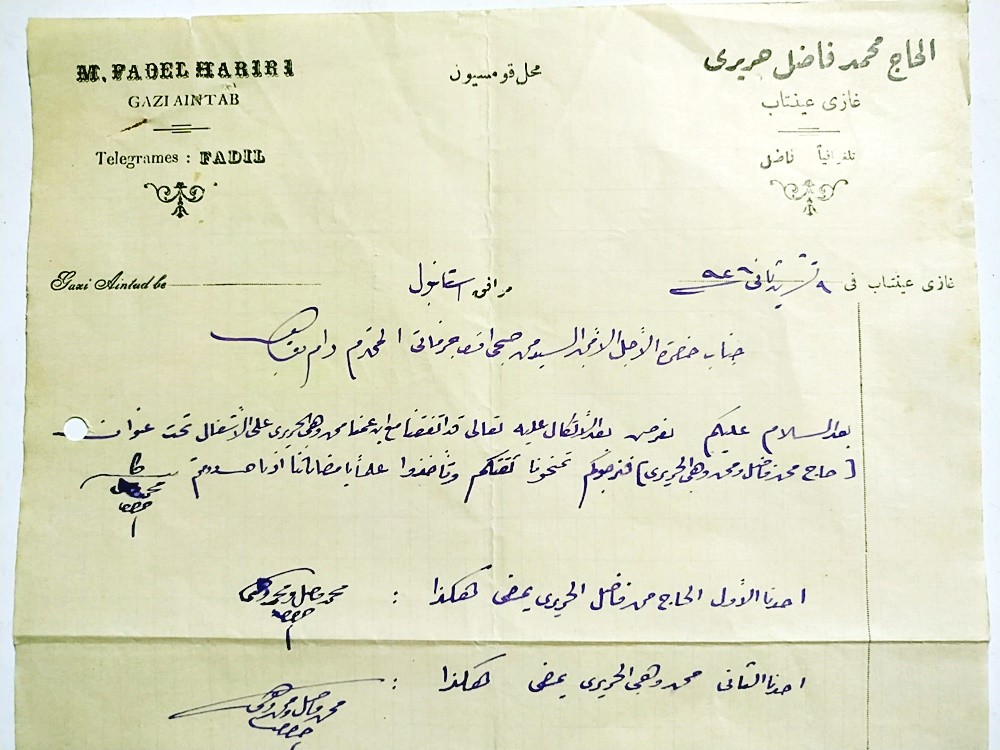 M. FADEL HARIRI
GAZI AINTAB
Telegrames : FADIL
محل قومسيون
الحاج محمد فاضل حريرى
غازى عينتاب
تلغرافياً فاضل
Gazi Aintab le
مرافق استانبول
غازى عينتاب فى ٩ تشرين ثانى ٩٢٦
جناب حضرة الأجل الأمجد السيد محمد صبحى المحترم دام بقاه
بعد السلام عليكم نعرض بعد الأتكال عليه تعالى قد اتفقنا مع ابن عمنا محمد وهبى الحريرى على الأشتغال تحت عنوان
(حاج محمد فاضل ومحمد وهبى الحريرى) فنرجوكم تمنحونا ثقتكم وتأخذوا علماً بامضاءاتنا
احدنا الأول الحاج محمد فاضل الحريرى يمضى هكذا :
احدنا الثانى محمد وهبى الحريرى يمضى هكذا :